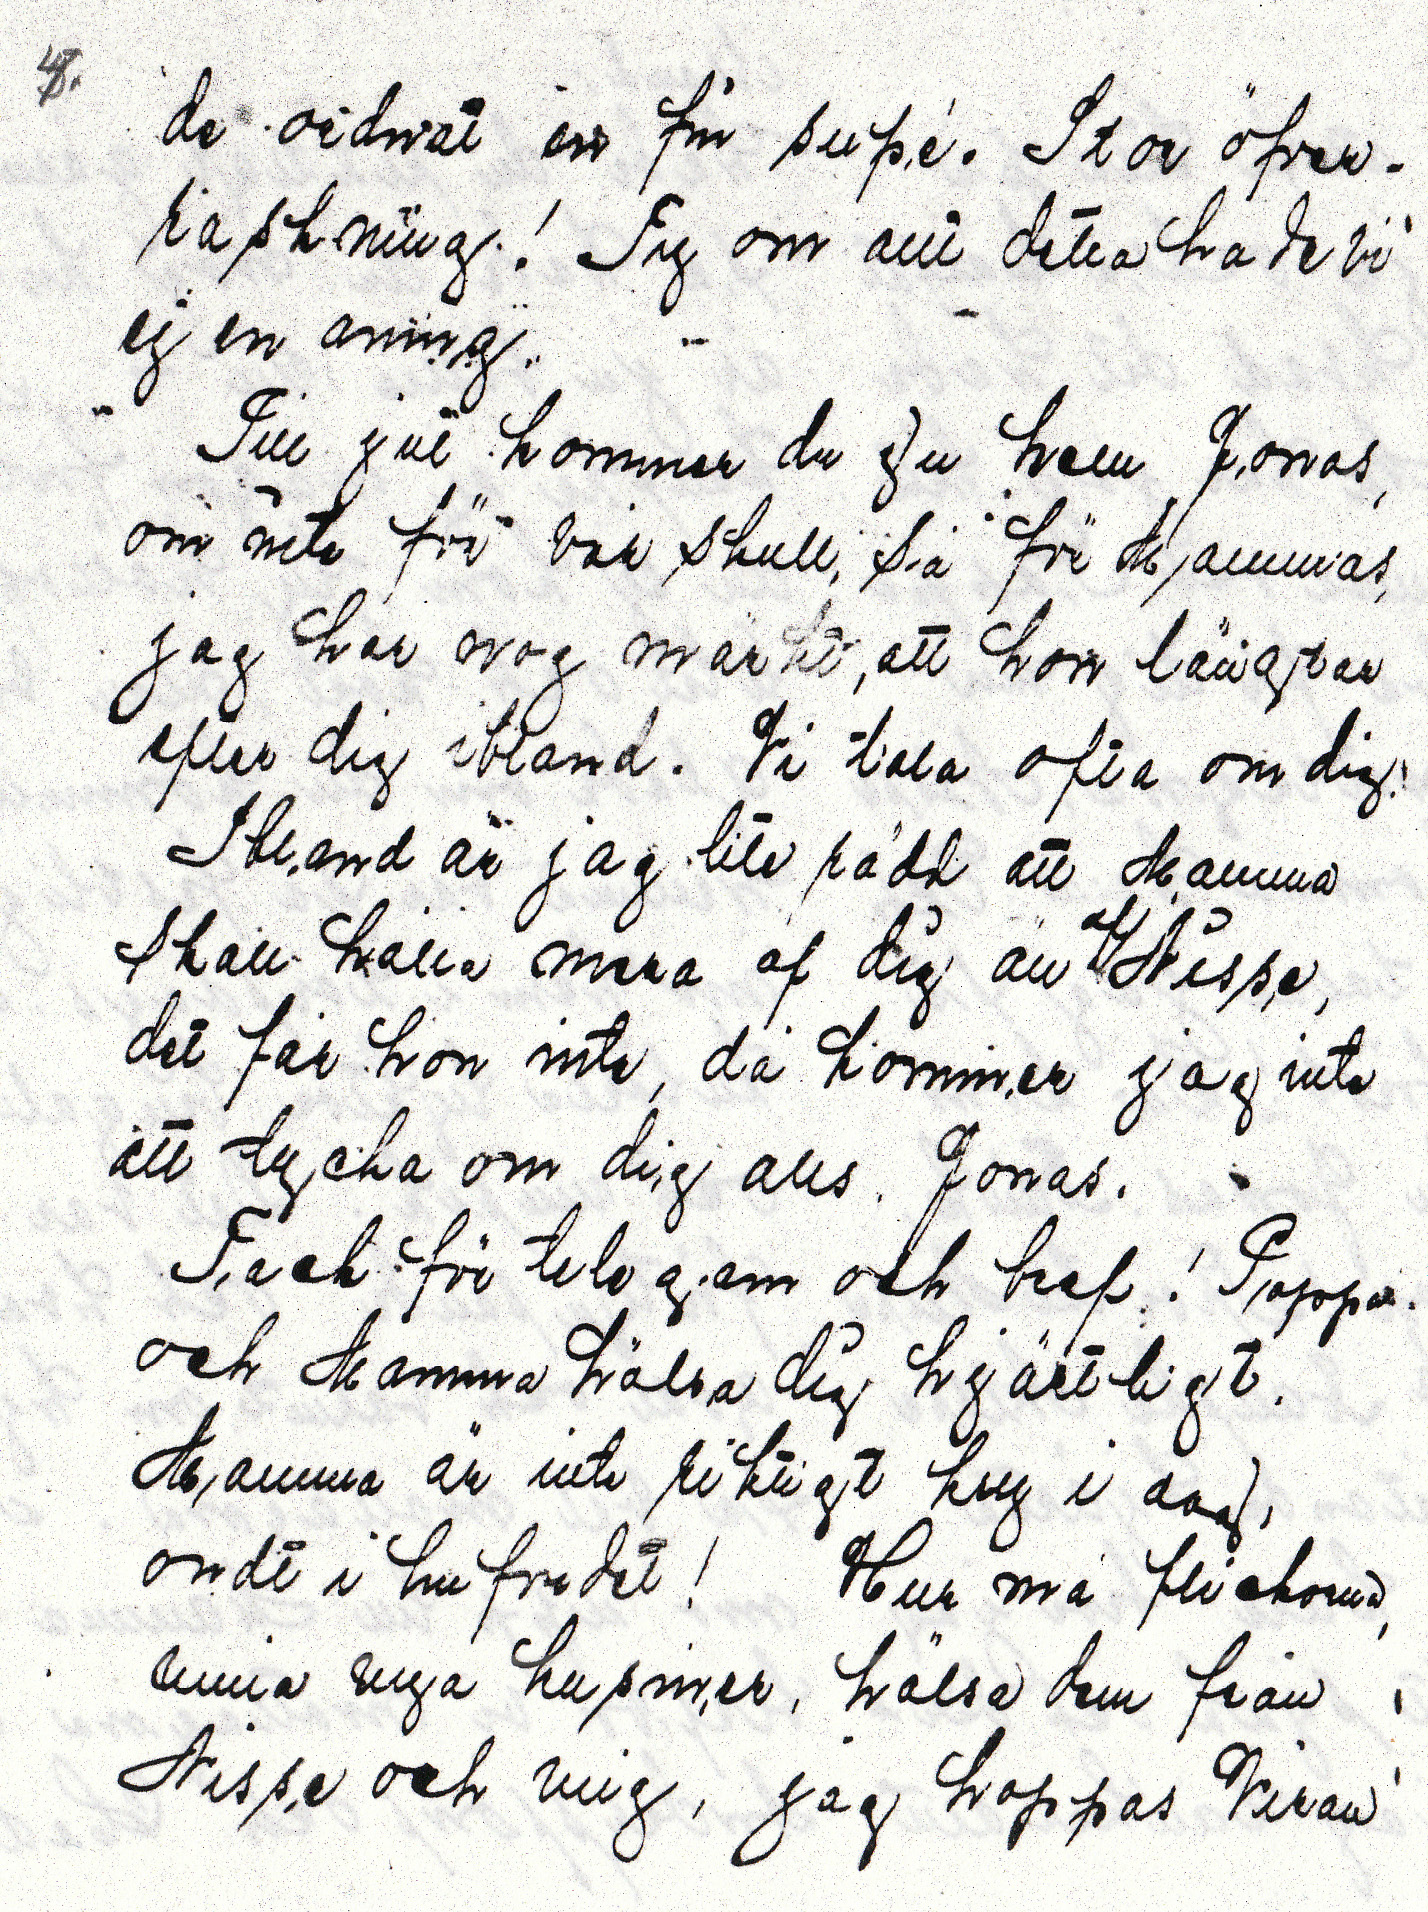 4.
de ordnat en fin supé. Stor öfver-
raskning! Ty om allt detta hade vi
ej en aning.
Till jul kommer du ju hem Jonas,
om inte för vår skull, så för Mammas,
jag har nog märkt, att hon längtar
efter dig ibland. Vi tala ofta om dig!
Ibland är jag lite rädd att Mamma
skall hålla mera af dig än af Nisse,
det får hon inte, då kommer jag inte
att tycka om dig alls. Jonas.
Tack för telegram och bref! Pappa
och Mamma hälsa dig hjärtligt.
Mamma är inte riktigt kry i dag,
ondt i hufvudet! Hur må flickorna,
mina nya kusiner, hälsa dem från
Nisse och mig, jag hoppas Viran